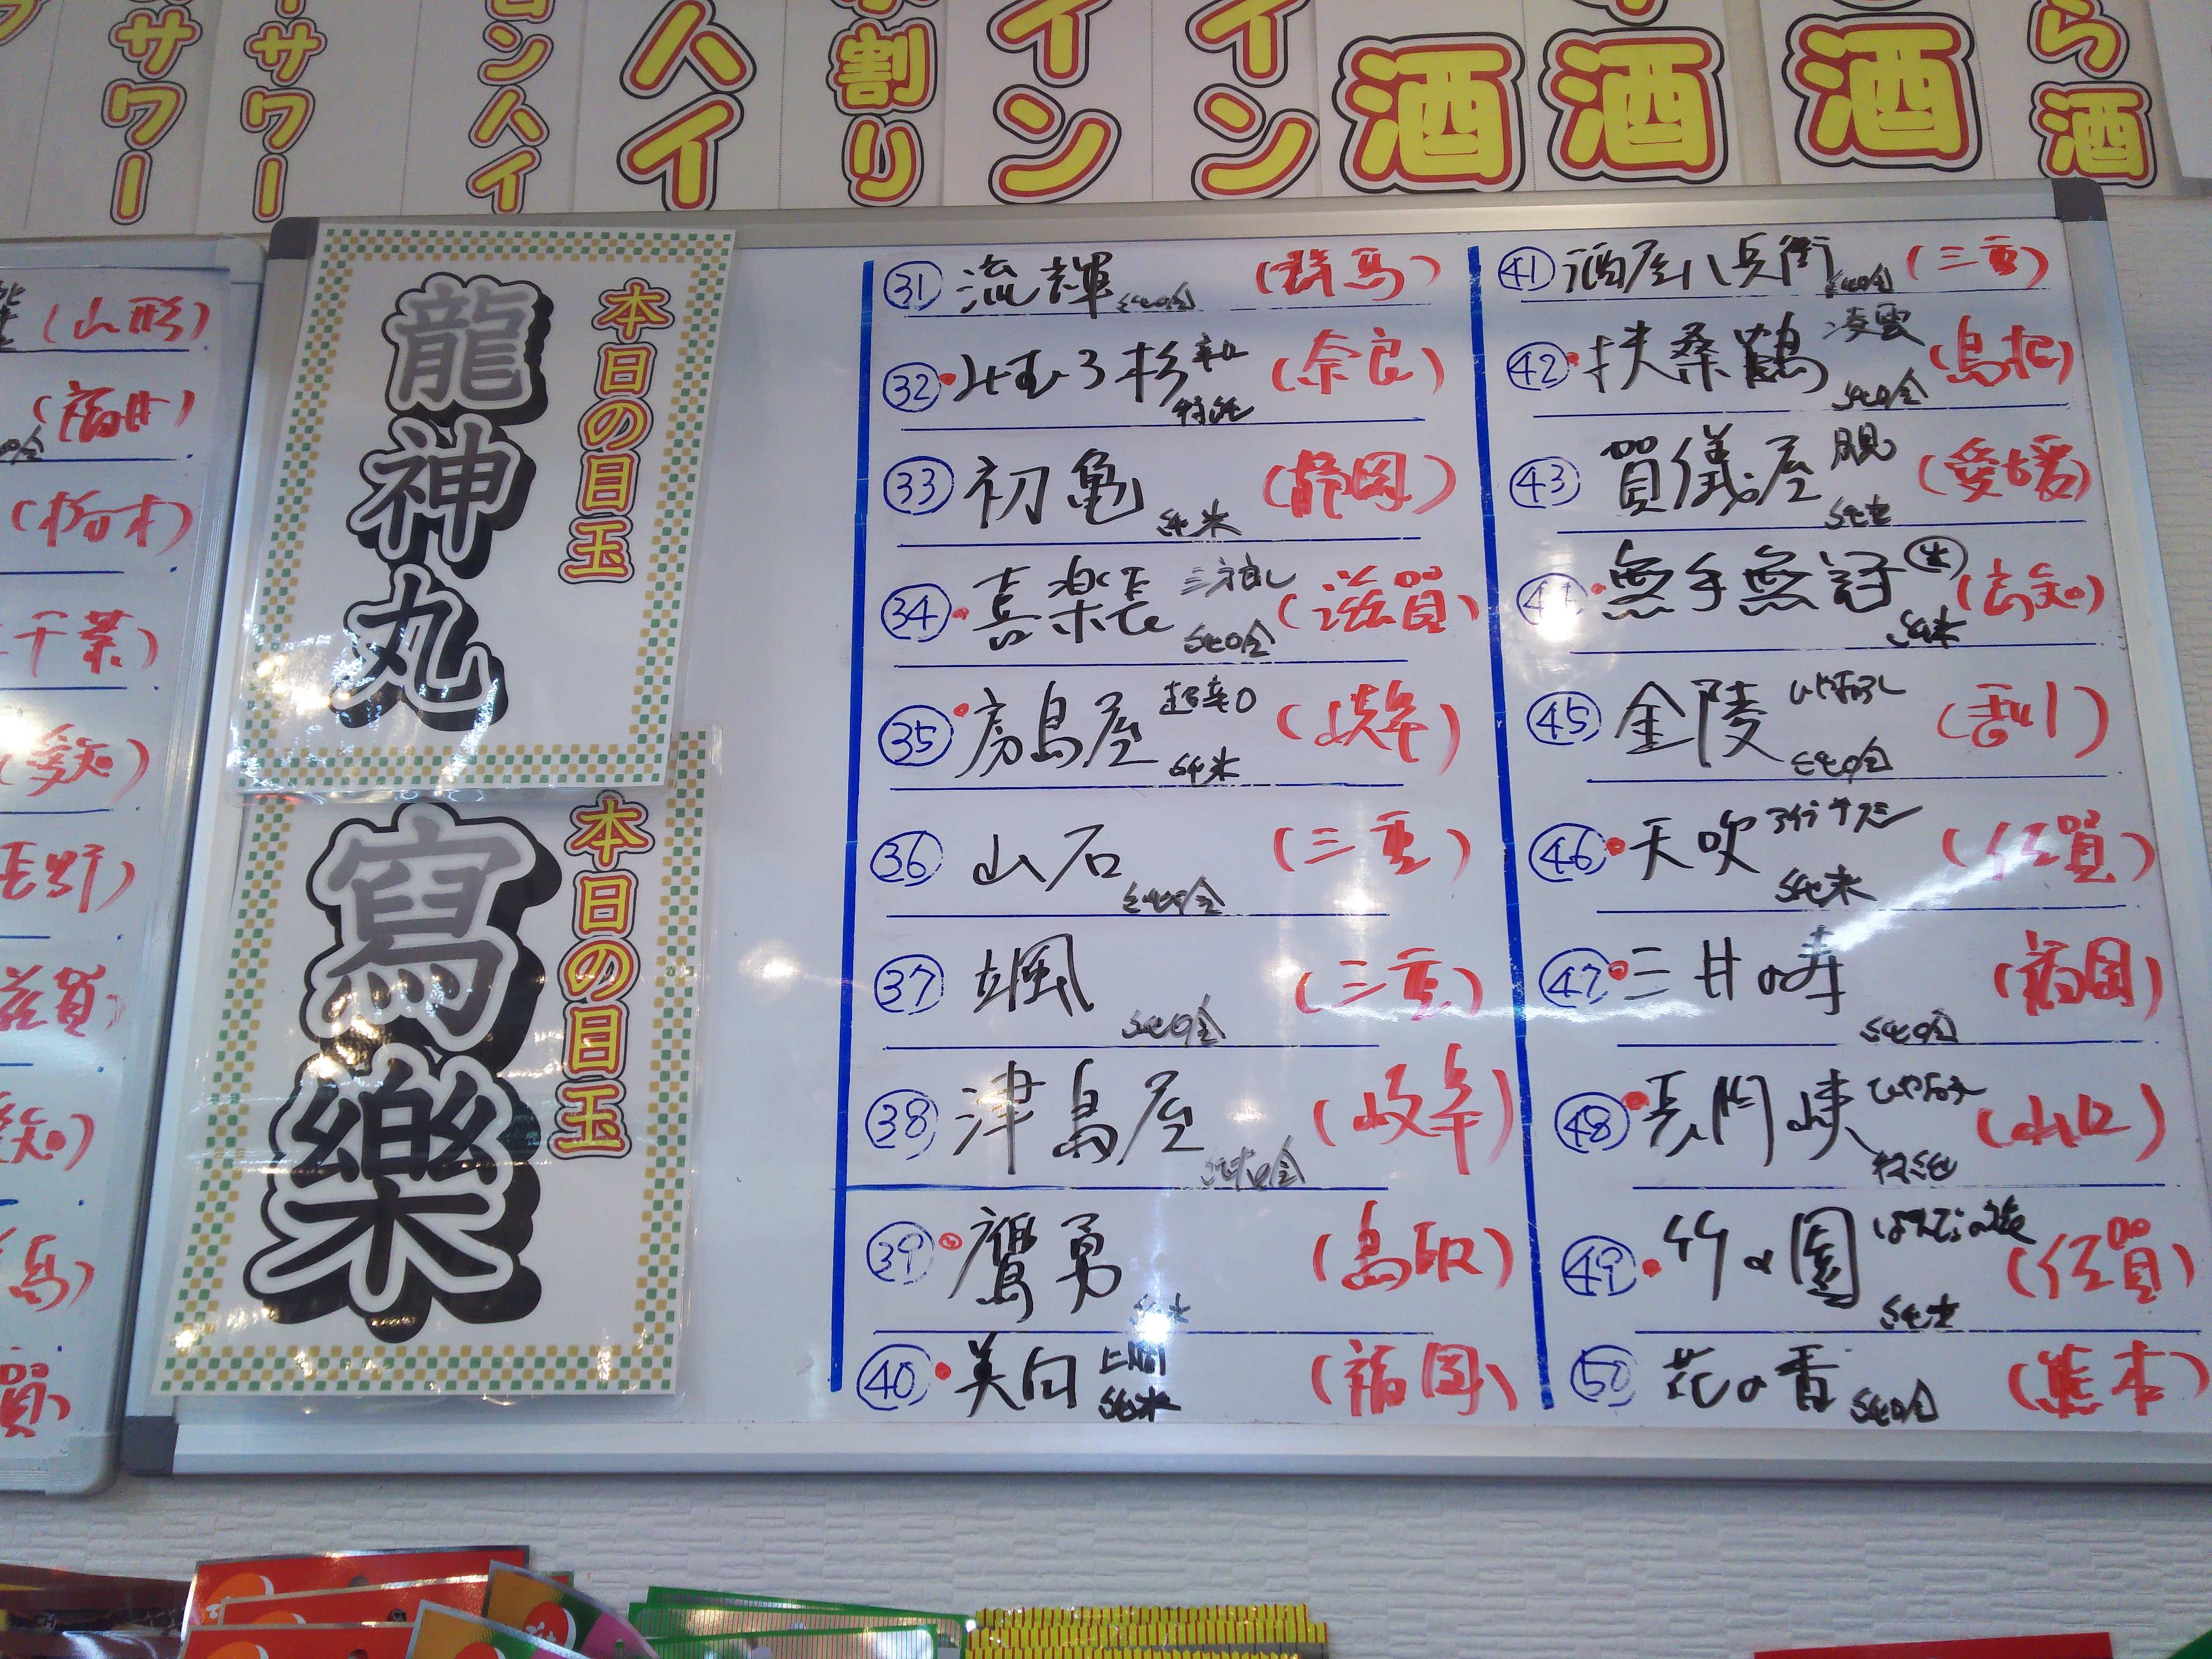 サワー
サワー
ンハイ
ハイ
水割り
イン
イン
酒
酒
酒
ら酒
(山形)
(福井)
(栃木)
千葉)
(愛知)
長野)
滋賀)
愛知)
馬)
賀)
本日の目玉
龍神丸
本日の目玉
寫樂
㉛ 流輝 純吟 (群馬)
㉜ みむろ杉 辛口 特純 (奈良)
㉝ 初亀 純米 (静岡)
㉞ 喜楽長 純吟 (滋賀)
㉟ 房島屋 超辛口 純米 (岐阜)
㊱ 山石 純吟 (三重)
㊲ 颯 純吟 (三重)
㊳ 津島屋 純吟 (岐阜)
㊴ 鷹勇 純米 (鳥取)
㊵ 美田 純米 (福岡)
㊶ 酒屋八兵衛 純吟 (三重)
㊷ 扶桑鶴 凌雲 純吟 (島根)
㊸ 賀儀屋 純米 (愛媛)
㊹ 無手無冠 純米 (高知)
㊺ 金陵 ひやおろし 純吟 (香川)
㊻ 天吹 純米 (佐賀)
㊼ 三井の寿 純吟 (福岡)
㊽ 長門峡 ひやおろし 特純 (山口)
㊾ 竹の園 純米 (佐賀)
㊿ 花の香 純吟 (熊本)